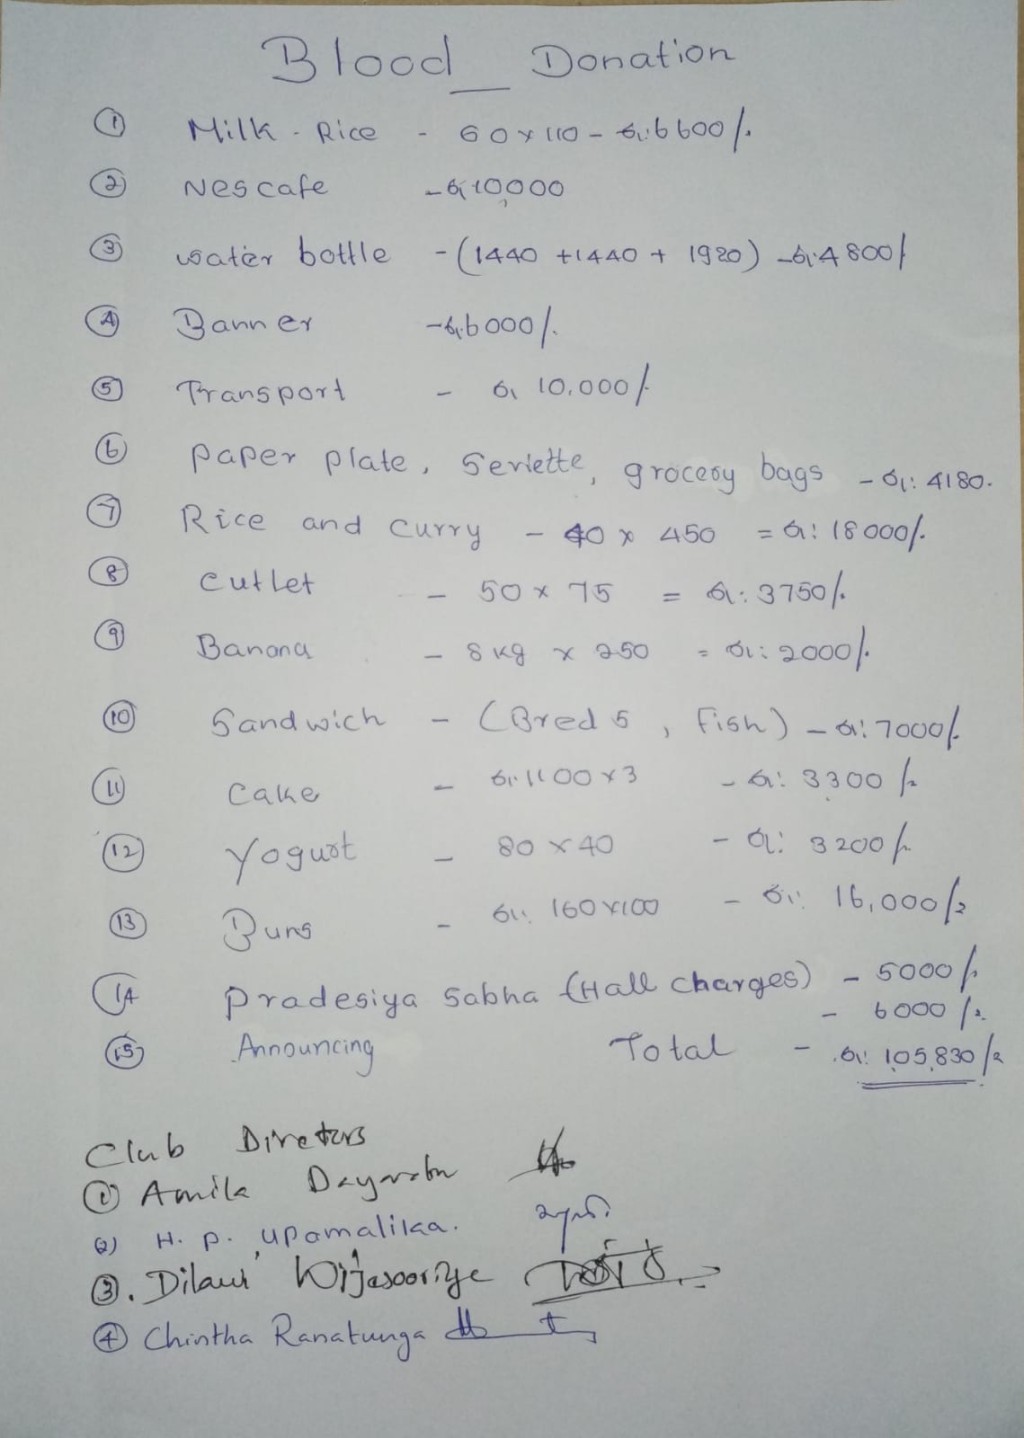 Blood Donation
① Milk - Rice - 60 x 110 - රු: 6600/.
② Nescafe - රු 10,000
③ water bottle - (1440 + 1440 + 1920) - රු. 4800/
④ Banner - රු. 6000/.
⑤ Transport - රු 10,000/-
⑥ paper plate, Serviette, grocery bags - රු: 4180.
⑦ Rice and curry - 40 x 450 = රු: 18000/.
⑧ cutlet - 50 x 75 = රු: 3750/.
⑨ Banana - 8 kg x 250 = රු: 2000/.
⑩ Sandwich - (Bred 5, Fish) - රු: 7000/.
⑪ cake - රු. 1100 x 3 - රු: 3300/.
⑫ Yogurt - 80 x 40 - රු: 3200/.
⑬ Buns - රු: 160 x 100 - රු: 16,000/=
⑭ pradesiya sabha (Hall charges) - 5000/.
- 6000/=.
⑮ Announcing Total - රු: 105,830/=
Club Diretors
① Amila
② H. P. Upamalikaa.
③. Wijesooriye
④ Chintha Ranatunga